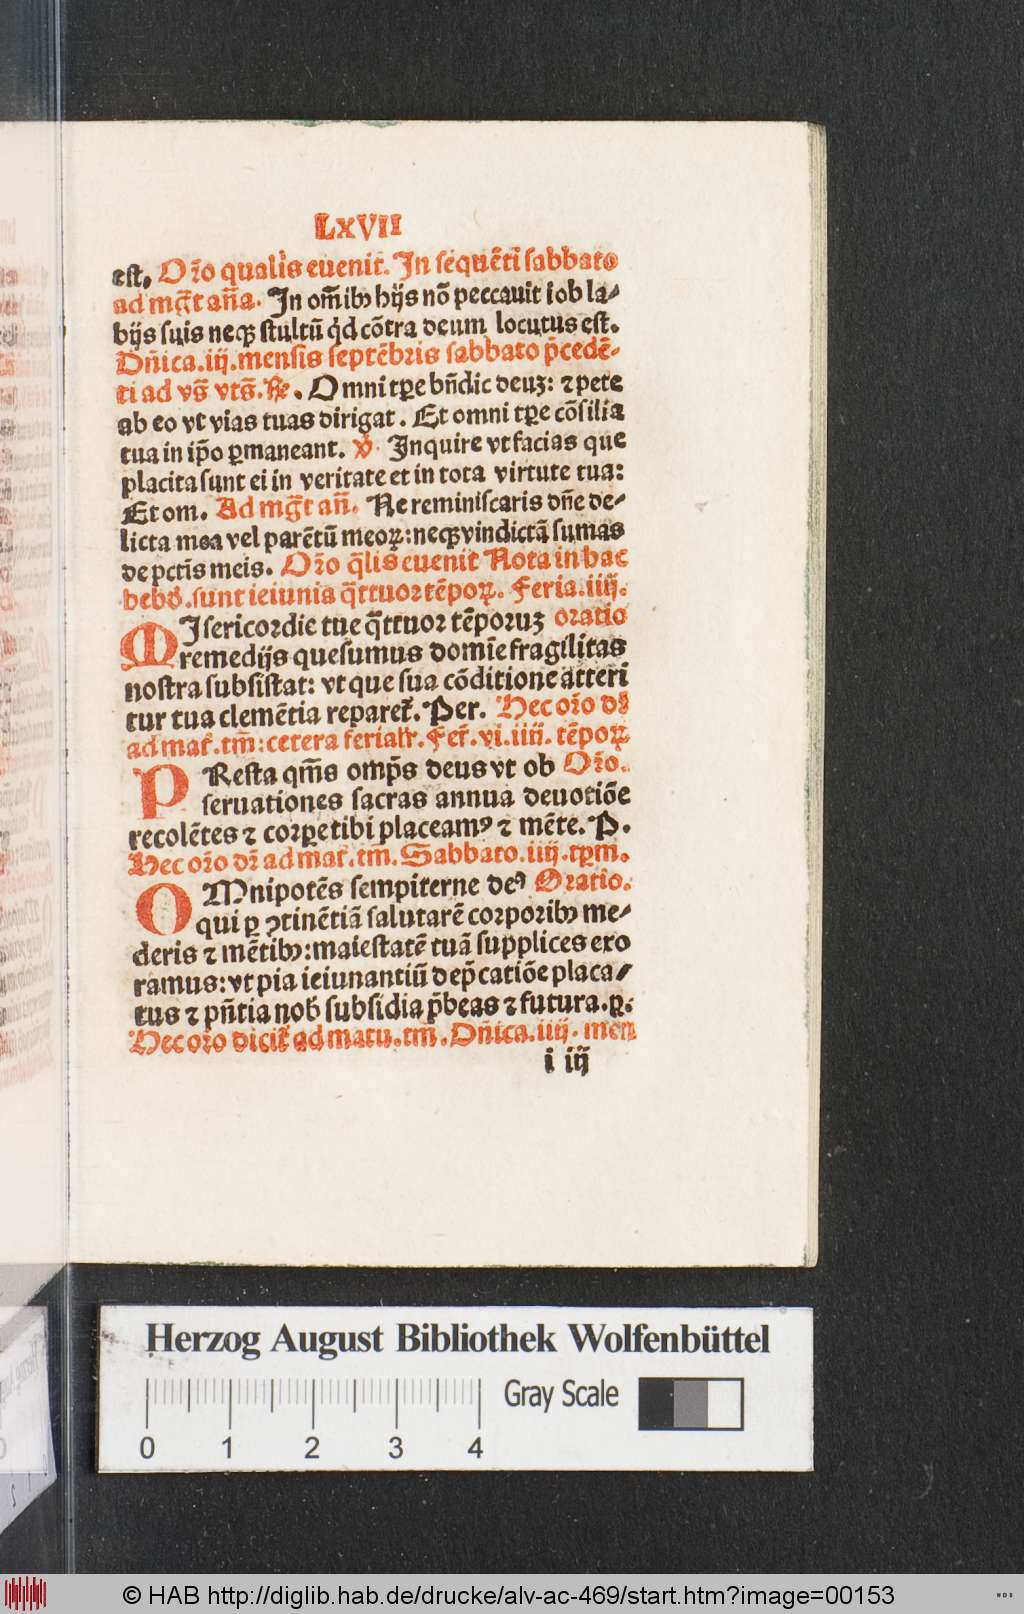 LxVII
est. Oꝛ̃o qualis euenit. In sequẽti sabbato
ad mg̃t an̄a. In om̄ibꝰ hijs nõ peccauit iob la⸗
bijs suis neqꝫ stultũ qd̓ cõtra deum locutus est.
Dn̄ica.iij.mensis septẽbꝛis sabbato p̄cedẽ⸗
ti ad vs̃ vts̃. ℟. Omni tꝑe bñdic deuꝫ: ⁊ pete
ab eo vt vias tuas dirigat. Et omni tꝑe cõsilia
tua in ip̃o ꝑmaneant. ℣. Inquire vt facias que
placita sunt ei in veritate et in tota virtute tua:
Et om. Ad mg̃t an̄. Ne reminiscaris dn̄e de⸗
licta mea vel parẽtũ meoꝝ: neqꝫ vindictã sumas
de pctĩs meis. Oꝛ̃o q̃lis euenit Nota in hac
hebd̓. sunt ieiunia q̃ttuoꝛ tẽpoꝝ. Feria.iiij.
MIsericoꝛdie tue q̃ttuoꝛ tẽpoꝛuꝫ oꝛatio
remedijs quesumus domĩe fragilitas
nostra subsistat: vt que sua cõditione atteri
tur tua clemẽtia reparet̃. Per. Hec oꝛ̃o dꝛ̃
ad mat̃. tm̃: cetera ferialr̃. Fer̃. vi. iiij. tẽpoꝝ
PResta qm̃s omp̃s deus vt ob Oꝛ̃o.
seruationes sacras annua deuotiõe
recolẽtes ⁊ coꝛꝑe tibi placeamꝰ ⁊ mẽte. P.
Hec oꝛ̃o dꝛ̃ ad mat̃. tm̃. Sabbato. iiij. tꝑm.
OMnipotẽs sempiterne deꝰ Oꝛatio.
qui ꝑ ꝯtinẽtiã salutarẽ coꝛpoꝛibꝰ me⸗
deris ⁊ mẽtibꝰ: maiestatẽ tuã supplices exo
ramus: vt pia ieiunantiũ dep̃catiõe placa⸗
tus ⁊ pñtia nob̓ subsidia p̃beas ⁊ futura. ꝑ.
Hec oꝛ̃o dicit̃ ad matu. tm̃. Dn̄ica. iiij. men
i iij
Herzog August Bibliothek Wolfenbüttel
Gray Scale
0 1 2 3 4
© HAB http://diglib.hab.de/drucke/alv-ac-469/start.htm?image=00153